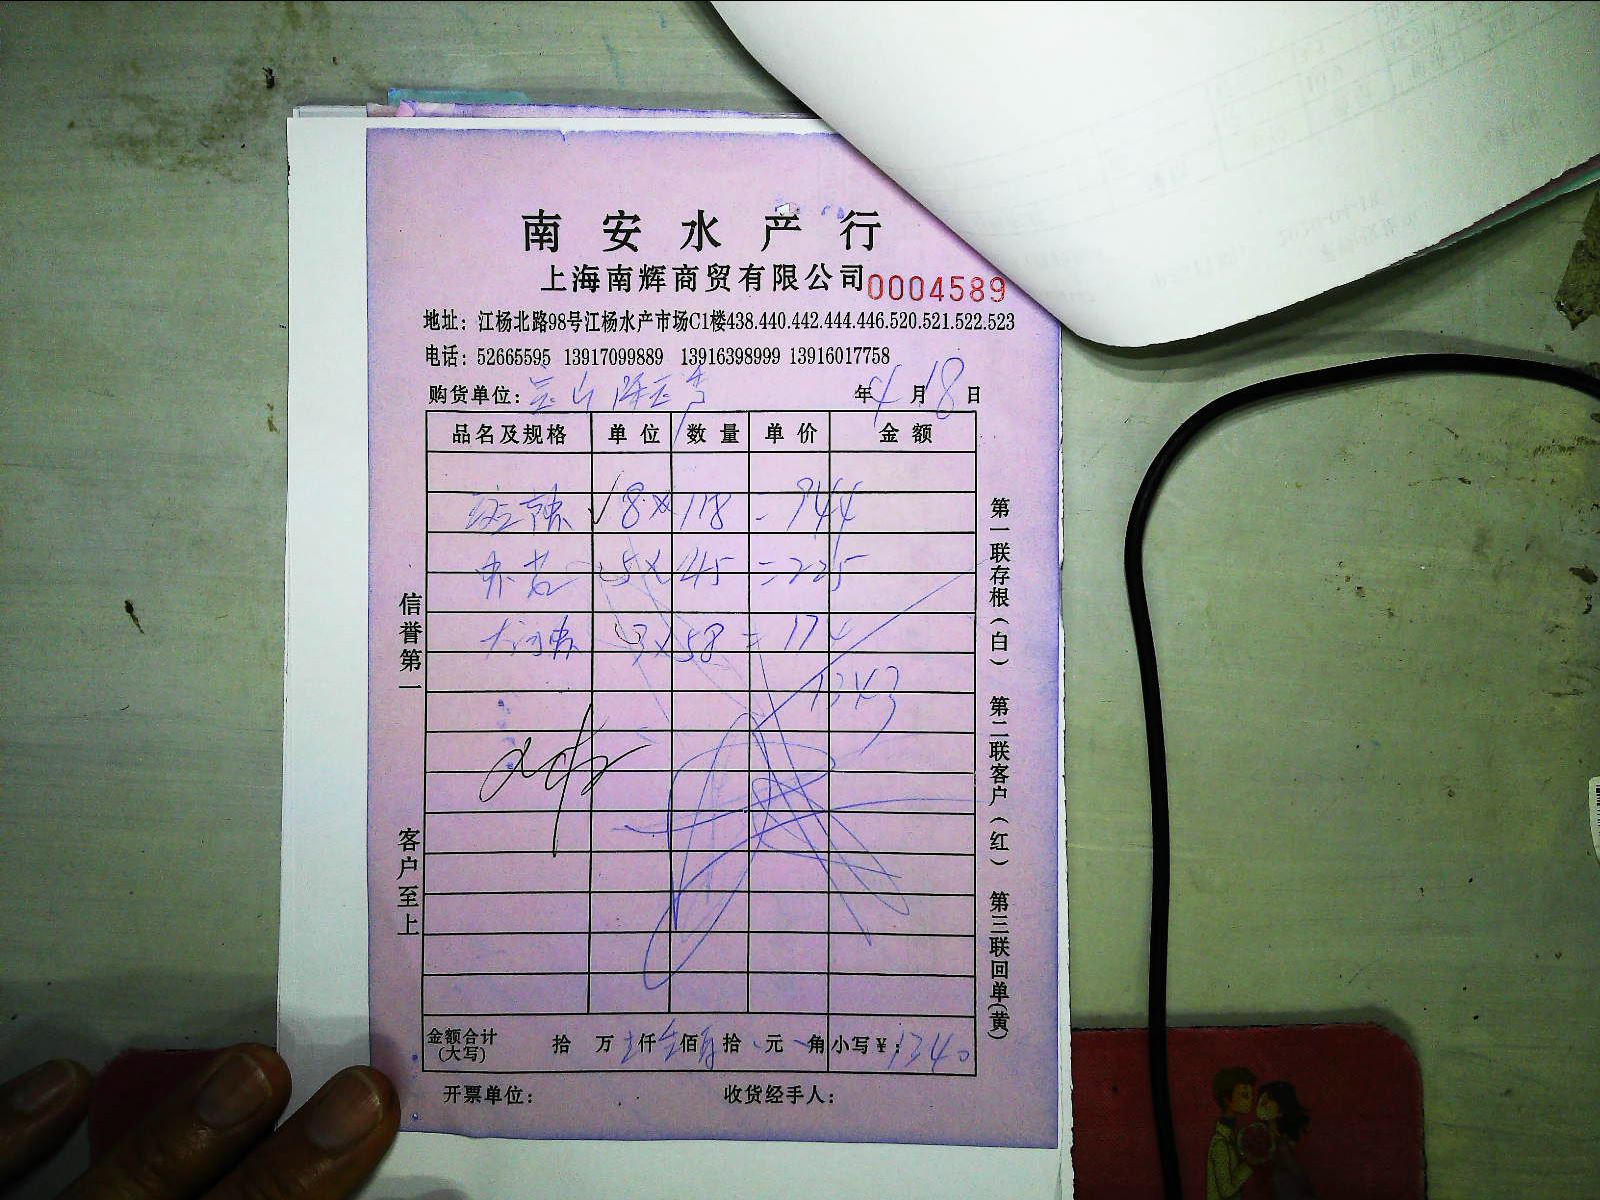 南安水产行
上海南辉商贸有限公司 0004589
地址：江杨北路98号江杨水产市场C1楼438.440.442.444.446.520.521.522.523
电话：52665595 13917099889 13916398999 13916017758
购货单位： 年4月18日
品名及规格 单位 数量 单价 金额
8×118=944
5×45=225
3×58=174
1343
金额合计(大写) 拾 万 仟 佰 拾 元 角 小写￥：1340
开票单位： 收货经手人：
信誉第一 客户至上
第一联存根(白) 第二联客户(红) 第三联回单(黄)